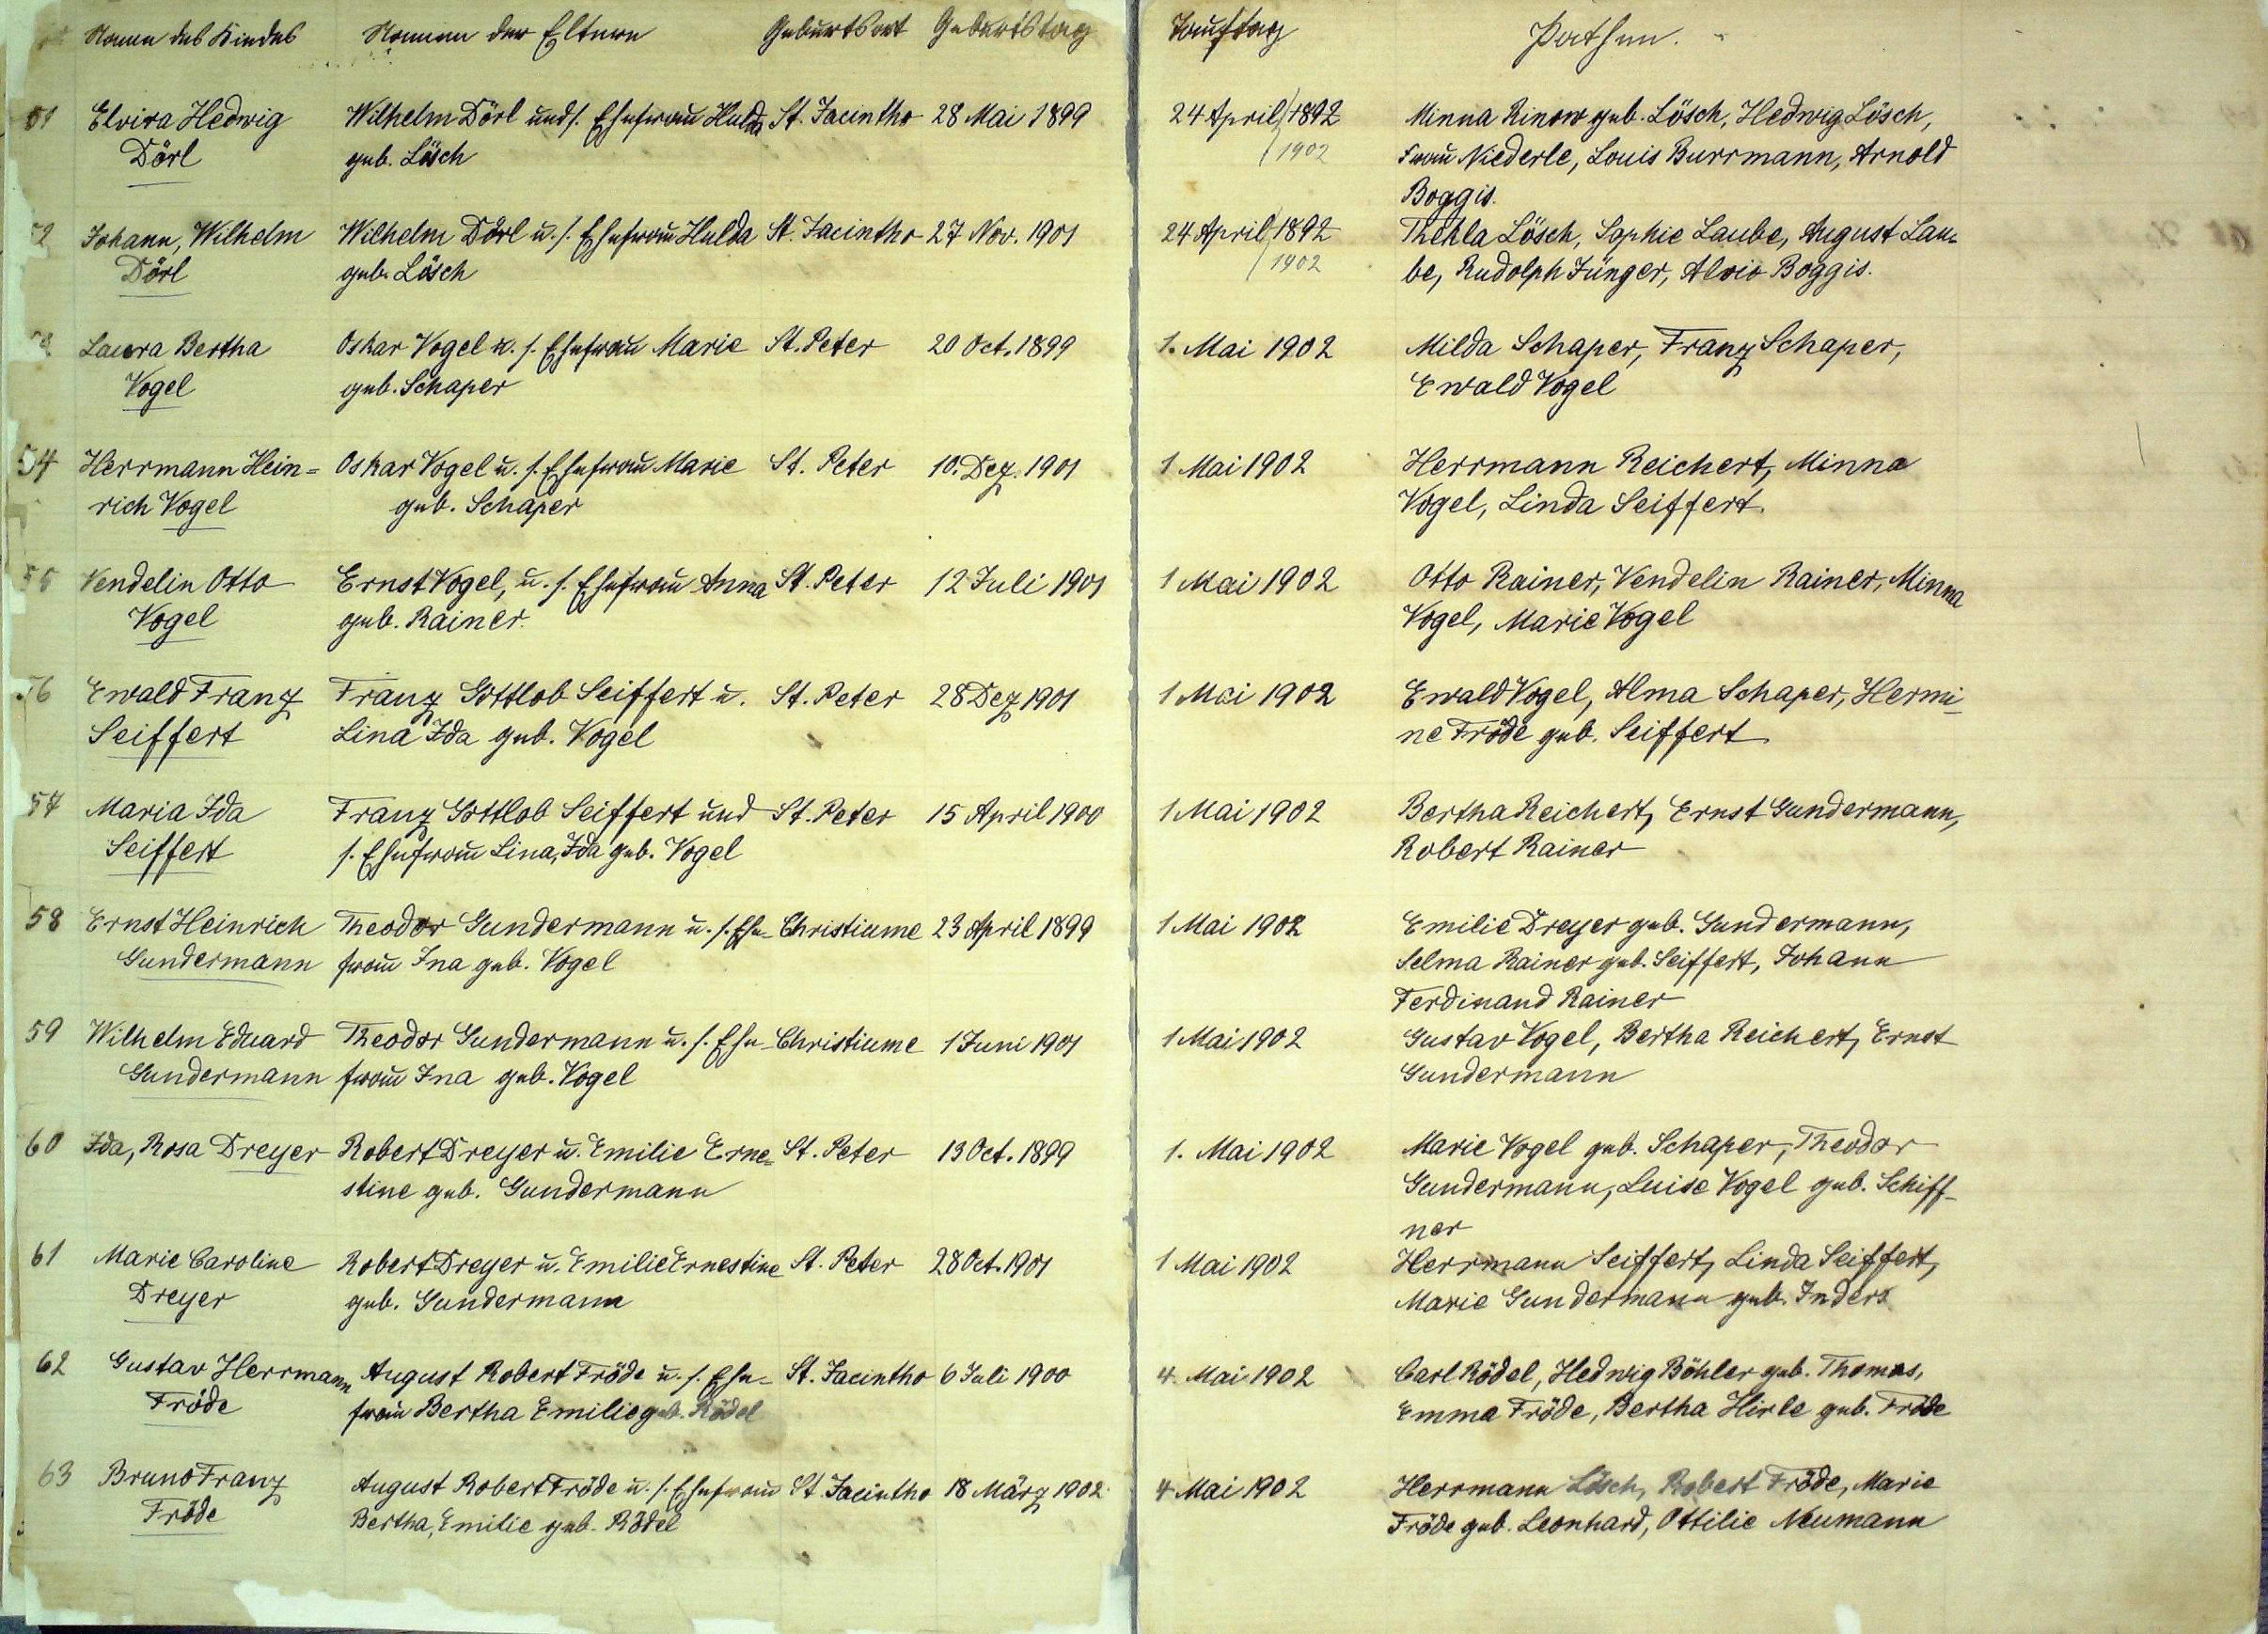 Namen des Kindes Namen der Eltern Geburtsort Geburtstag Tauftag Pathen.
51 Elvira Hedwig Wilhelm Dörl und s. Ehefrau Hulda St. Jacintho 28 Mai 1899 24 April 1892 Minna Rinow geb. Lösch, Hedwig Lösch,
Dörl geb. Lösch 1902 Frau Niederle, Louis Burrmann, Arnold
Boggis.
52 Johann, Wilhelm Wilhelm Dörl u. s. Ehefrau Hulda St. Jacintho 27 Nov. 1901 24 April 1892 Thekla Lösch, Sophie Laube, August Lau-
Dörl geb. Lösch 1902 be, Rudolph Jünger, Alvio Boggis.
Laura Bertha Oskar Vogel u. s. Ehefrau Marie St. Peter 20 Oct. 1899 1. Mai 1902 Milda Schaper, Franz Schaper,
Vogel geb. Schaper Ewald Vogel
54 Herrmann Hein= Oskar Vogel u. s. Ehefrau Marie St. Peter 10. Dez. 1901 1 Mai 1902 Herrmann Reichert, Minna
rich Vogel geb. Schaper Vogel, Linda Seiffert.
55 Vendelin Otto Ernst Vogel, u. s. Ehefrau Anna St. Peter 12 Juli 1901 1 Mai 1902 Otto Rainer, Vendelin Rainer, Minna
Vogel geb. Rainer. Vogel, Marie Vogel
56 Ewald Franz Franz Gottlob Seiffert u. St. Peter 28 Dez 1901 1 Mai 1902 Ewald Vogel, Alma Schaper, Hermi-
Seiffert Lina Ida geb. Vogel ne Fröde geb. Seiffert
57 Maria Ida Franz Gottlob Seiffert und St. Peter 15 April 1900 1 Mai 1902 Bertha Reichert, Ernst Gundermann,
Seiffert s. Ehefrau Lina, Ida geb. Vogel Robert Rainer
58 Ernst Heinrich Theodor Gundermann u. s. Ehe- Christiume 23 April 1899 1 Mai 1902 Emilie Dreyer geb. Gundermann,
Gundermann frau Ina geb. Vogel Selma Rainer geb. Seiffert, Johann
Ferdinand Rainer
59 Wilhelm Eduard Theodor Gundermann u. s. Ehe- Christiume 1 Juni 1901 1 Mai 1902 Gustav Vogel, Bertha Reichert, Ernst
Gundermann frau Ina geb. Vogel Gundermann
60 Ida, Rosa Dreyer Robert Dreyer u. Emilie Erne= St. Peter 13 Oct. 1899 1. Mai 1902 Marie Vogel geb. Schaper, Theodor
stine geb. Gundermann Gundermann, Luise Vogel geb. Schiff-
ner
61 Marie Caroline Robert Dreyer u. Emilie Ernestine St. Peter 28 Oct. 1901 1 Mai 1902 Herrmann Seiffert, Linda Seiffert,
Dreyer geb. Gundermann Marie Gundermann geb. Inders
62 Gustav Herrmann August Robert Fröde u. s. Ehe- St. Jacintho 6 Juli 1900 4. Mai 1902 Carl Rödel, Hedwig Böhler geb. Thomas,
Fröde frau Bertha Emilie geb. Rödel Emma Fröde, Bertha Hirle geb. Fröde
63 Bruno Franz August Robert Fröde u. s. Ehefrau St. Jacintho 18 März 1902. 4 Mai 1902 Herrmann Lösch, Robert Fröde, Marie
Fröde Bertha, Emilie geb. Rödel Fröde geb. Leonhard, Ottilie Neumann